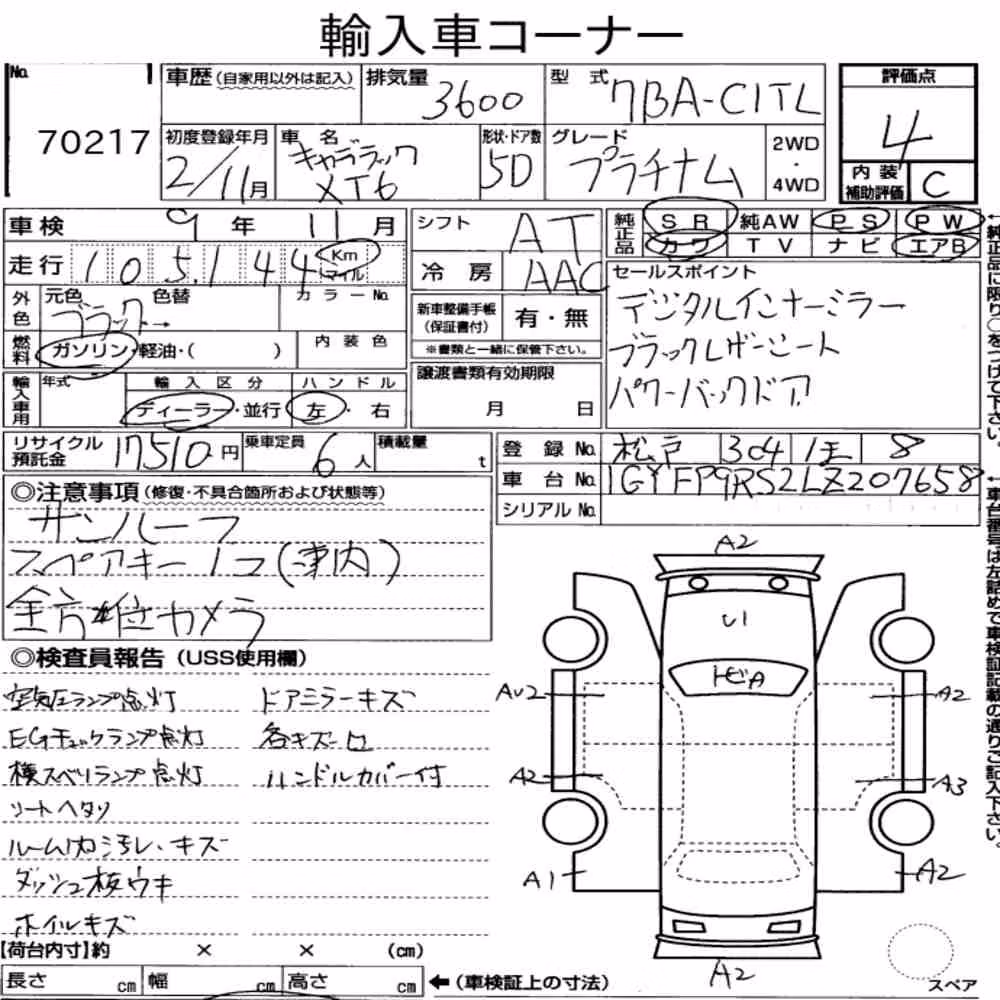 輸入車コーナー
No. 70217
車歴(自家用以外は記入)
排気量 3600
型式 7BA-C1TL
評価点 4
初度登録年月 2/11月
車名 キャデラック XT6
形状・ドア数 5D
グレード プラチナム
2WD・4WD
内装補助評価 C
車検 9年 11月
シフト AT
純正品 SR 純AW PS PW
カワ TV ナビ エアB
走行 105,144 Km マイル
冷房 AAC
外色 元色 ブラック→ 色替 カラーNo.
新車整備手帳(保証書付) 有・無
※書類と一緒に保管下さい。
セールスポイント
デジタルインナーミラー
ブラックレザーシート
パワーバックドア
燃料 ガソリン・軽油・( )
内装色
輸入車用 年式 輸入区分 ハンドル
ディーラー・並行 左・右
譲渡書類有効期限
月 日
リサイクル預託金 17510円
乗車定員 6人
積載量 t
登録No. 松戸 304 8
車台No. 1GYFP9RS2LZ207658
シリアルNo.
◎注意事項(修復・不具合箇所および状態等)
サンルーフ
スペアキー1コ(車内)
全方位カメラ
◎検査員報告(USS使用欄)
空気圧ランプ点灯 ドアミラーキズ
EGチェックランプ点灯 各キズ凹
横スベリランプ点灯 ハンドルカバー付
シートヘタリ
ルーム内汚レ・キズ
ダッシュ板ウキ
ホイルキズ
A2
U1
トビA
AU2 A2
A2 A3
A1 A2
A2
スペア
【荷台内寸】約 × × (cm)
長さ cm 幅 cm 高さ cm ←(車検証上の寸法)
←純正品に限り○をつけて下さい。
←車台番号は左詰めで車検証記載の通りご記入下さい。